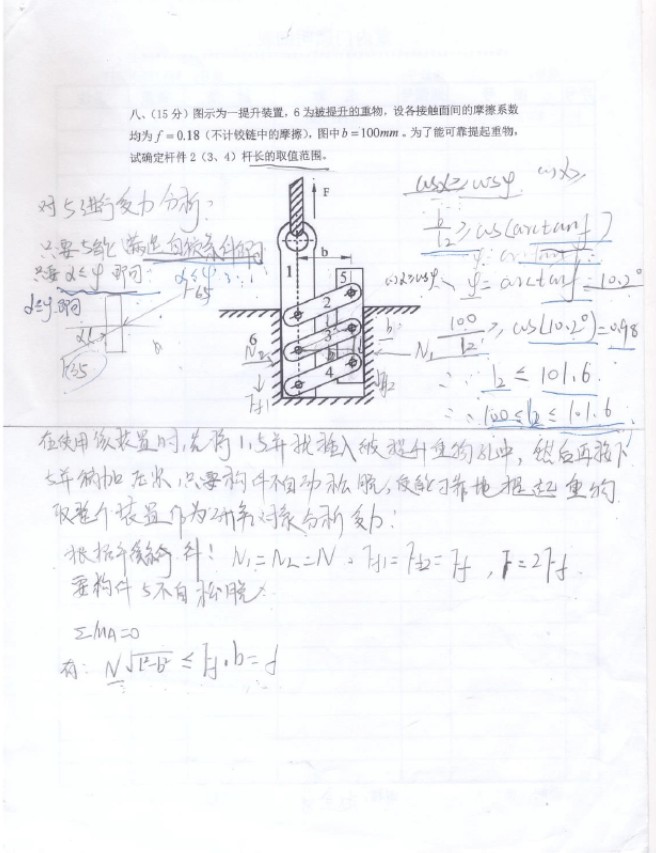 八、(15 分) 图示为一提升装置, 6 为被提升的重物, 设各接触面间的摩擦系数
均为 f = 0.18 (不计铰链中的摩擦), 图中 b = 100mm 。为了能可靠提起重物,
试确定杆件 2 (3、4) 杆长的取值范围。
对5进行受力分析:
只要5能满足自锁条件即可
只要 α≤φ 即可
α≤φ
α≤φ 即可
F65
F
b
1
5
2
3
4
6
N2
Ff1
N1
cosα≥cosφ
b/l2 ≥ cos(arctanf)
cosα≥cosφ
φ = arctanf = 10.2°
100/l2 ≥ cos(10.2°) = 0.98
∴ l2 ≤ 101.6
∴ 100 ≤ l2 ≤ 101.6
在使用该装置时,先将1,5并拢推入被提升重物孔中,然后再按下
5并施加压力,只要构件不自动松脱,便能可靠地提起重物
取整个装置作为研究对象分析受力:
根据平衡条件: N1=N2=N, Ff1=Ff2=Ff, F=2Ff
要构件5不自松脱
ΣMA=0
有: N√l²-b² ≤ Ff·b = f